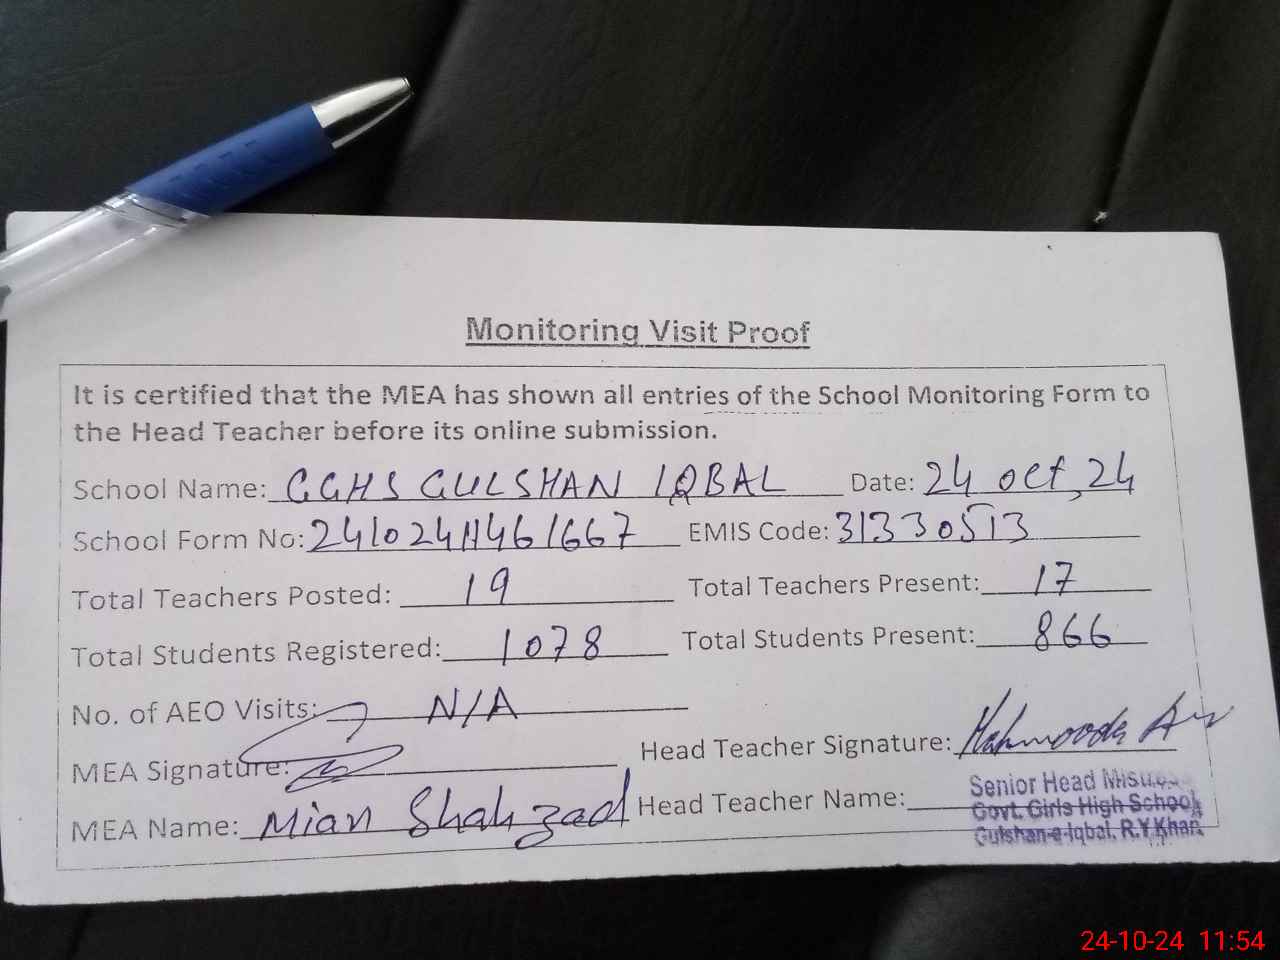 Monitoring Visit Proof
It is certified that the MEA has shown all entries of the School Monitoring Form to
the Head Teacher before its online submission.
School Name: GGHS GULSHAN IQBAL Date: 24 oct, 24
School Form No: 2410241146 1667 EMIS Code: 31330513
Total Teachers Posted: 19 Total Teachers Present: 17
Total Students Registered: 1078 Total Students Present: 866
No. of AEO Visits: N/A
MEA Signature: Head Teacher Signature: Mahmooda
MEA Name: Mian Shahzad Head Teacher Name:
Senior Head Mistress
Govt. Girls High School
Gulshan-e-Iqbal. R.Y.Khan.
24-10-24 11:54